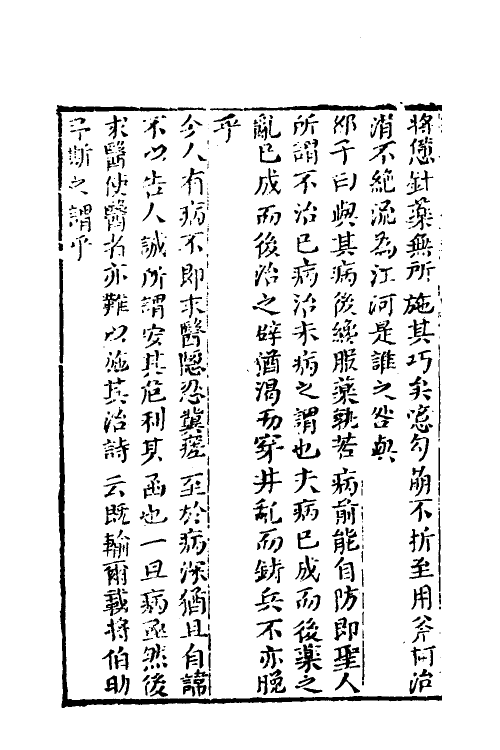 將憊針藥無所施其巧矣噫勾萌不折至用斧柯涓
涓不絕流為江河是誰之咎與
邵子曰與其病後纔服藥孰若病前能自防即聖人
所謂不治已病治未病之謂也夫病已成而後藥之
亂已成而後治之辟猶渴而穿井乱而鋳兵不亦晚
乎
今人有病不即求醫隱忍冀瘥至於病深猶且自諱
不以告人誠所謂安其危利其菑也一旦病亟然後
求醫使醫者亦難以施其治詩云既輸爾載將伯助
予斯之謂乎